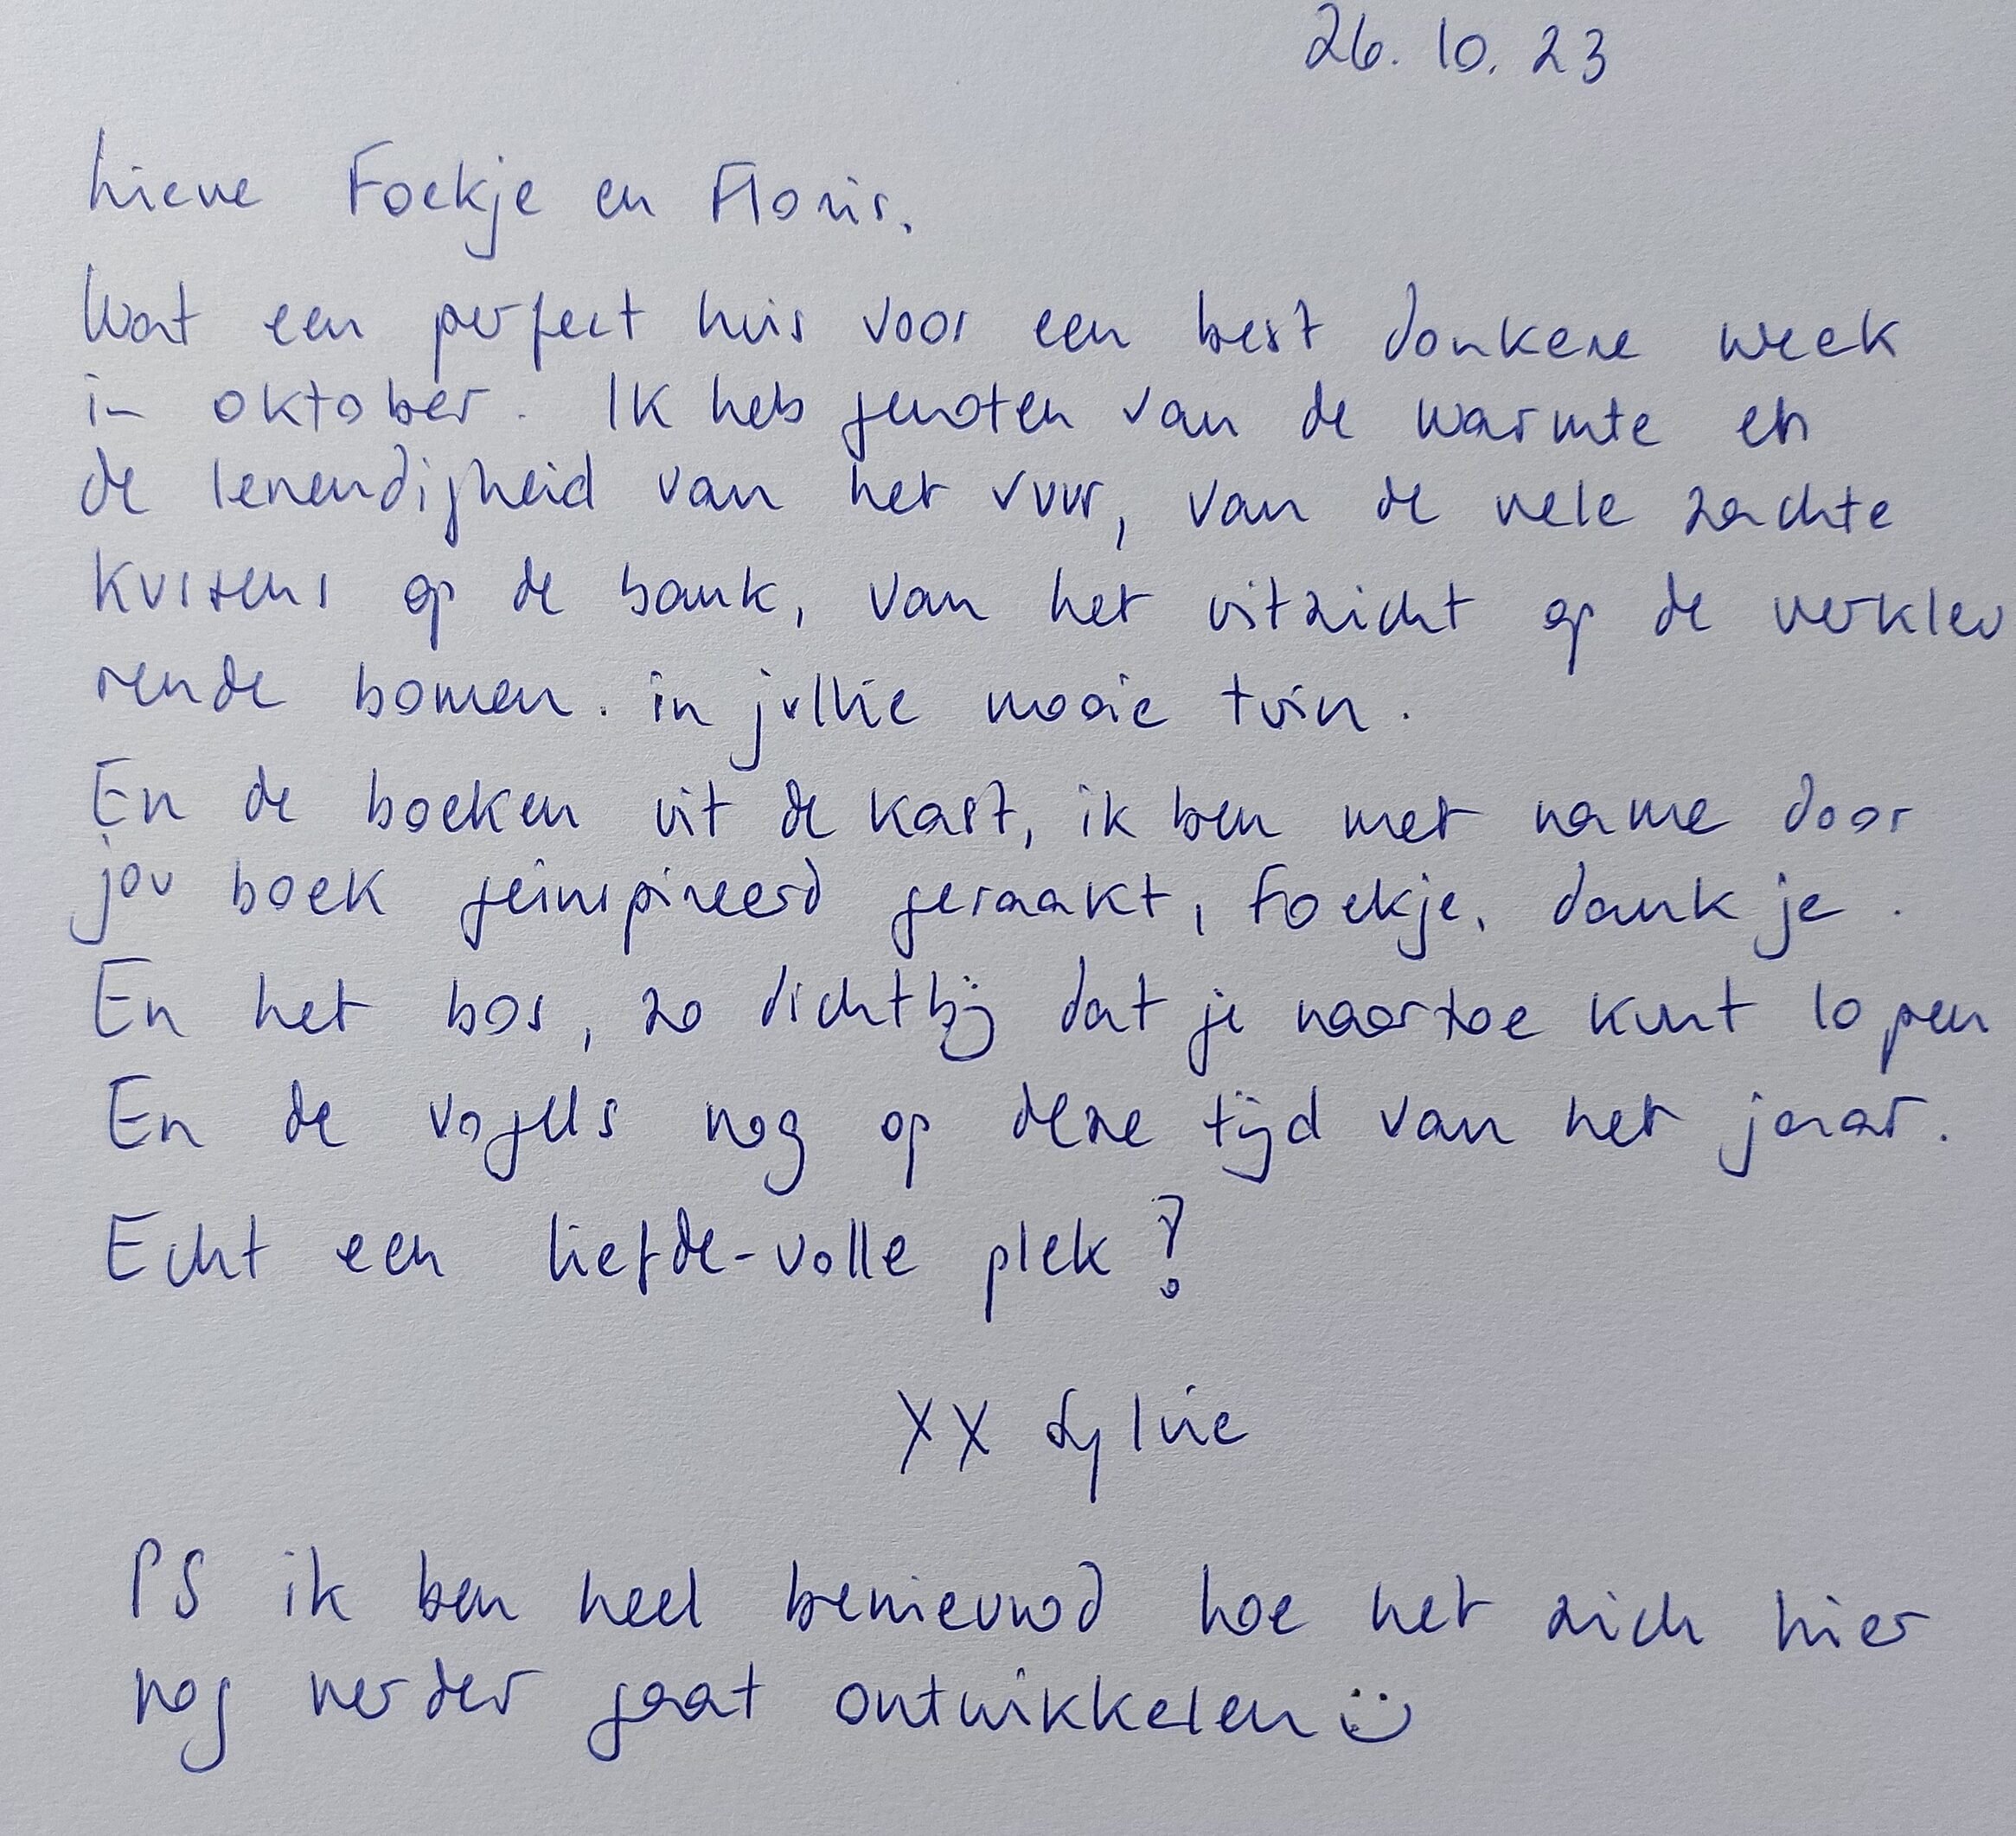 26.10.23
Lieve Foekje en Floris,
Wat een perfect huis voor een best donkere week
in oktober. Ik heb genoten van de warmte en
de levendigheid van het vuur, van de vele zachte
kussens op de bank, van het uitzicht op de verkleu
rende bomen. in jullie mooie tuin.
En de boeken uit de kast, ik ben met name door
jou boek geïnspireerd geraakt, Foekje, dank je.
En het bos, zo dichtbij dat je naartoe kunt lopen
En de vogels nog op deze tijd van het jaar.
Echt een liefde-volle plek!
XX Sylvie
PS ik ben heel benieuwd hoe het zich hier
nog verder gaat ontwikkelen :)